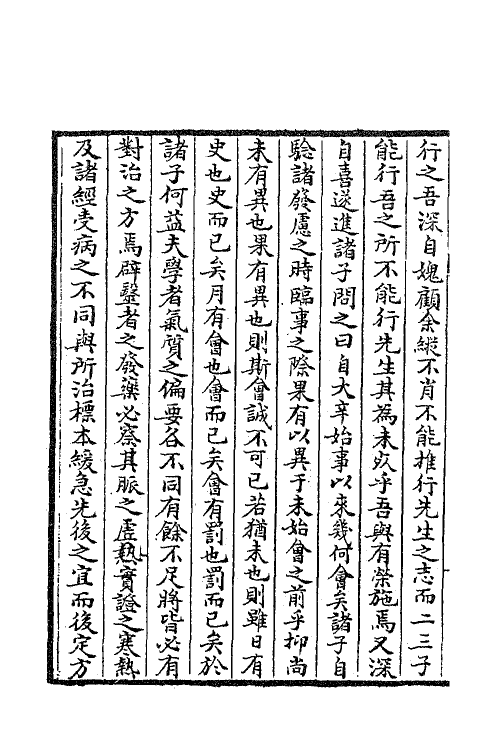 行之吾深自媿顧余縱不肖不能推行先生之志而二三子
能行吾之所不能行先生其為未㱙乎吾與有榮施焉又深
自喜遂進諸子問之曰自大辛始事以來幾何會矣諸子自
驗諸發慮之時臨事之際果有以異于未始會之前乎抑尚
未有異也果有異也則斯會誠不可已若猶未也則雖日有
史也史而已矣月有會也會而已矣會有罰也罰而已矣於
諸子何益夫學者氣質之偏要各不同有餘不足將皆必有
對治之方焉辟毉者之發藥必察其脈之虛熱實證之寒熱
及諸經受病之不同與所治標本緩急先後之宜而後定方